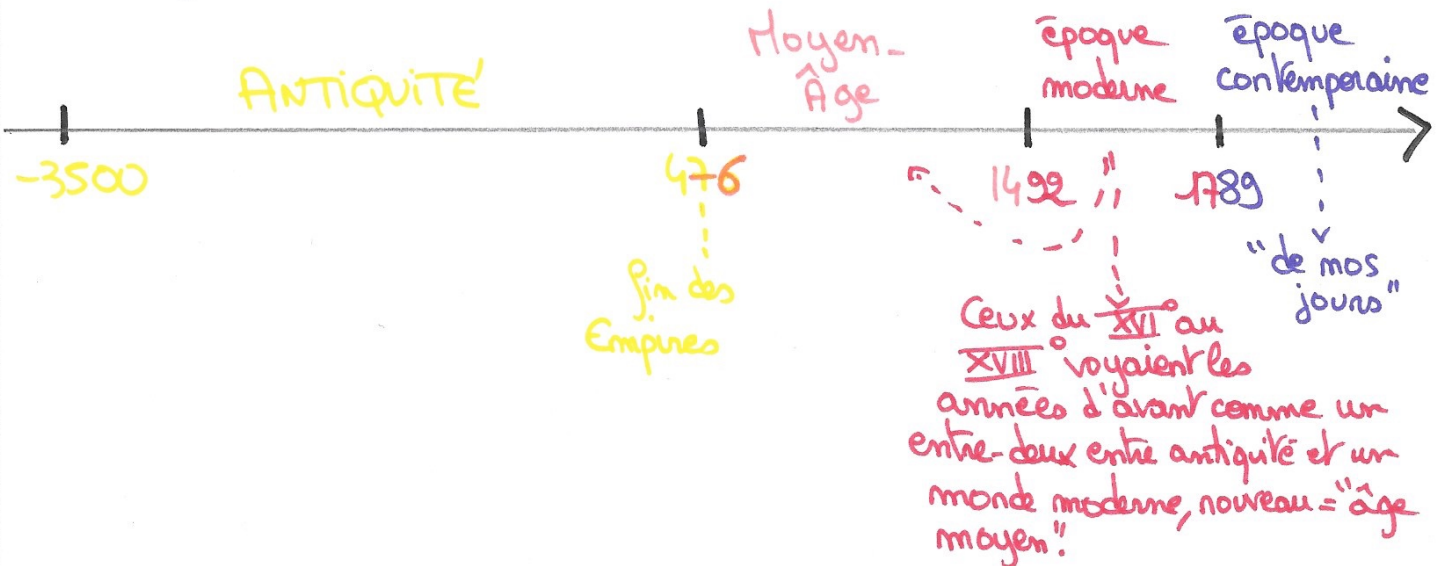 ANTIQUITÉ
Moyen-
Âge
époque
moderne
époque
contemporaine
-3500
476
1492
1789
fin des
Empires
"de mos
jours"
Ceux du XVI° au
XVIII° voyaient les
années d'avant comme un
entre-deux entre antiquité et un
monde moderne, nouveau = "âge
moyen".